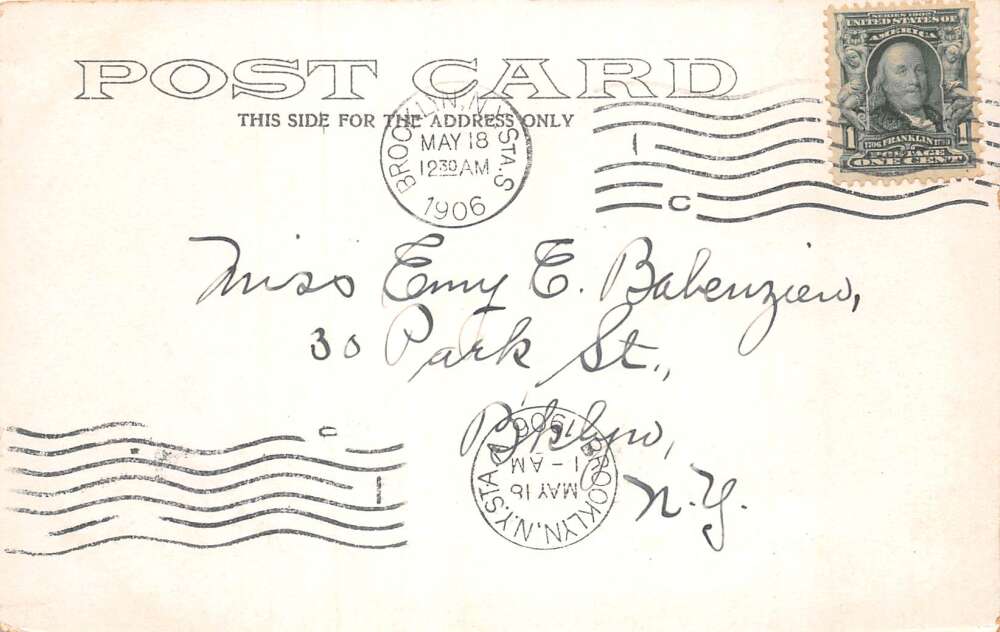 POST CARD
THIS SIDE FOR THE ADDRESS ONLY
SERIES 1902
UNITED STATES OF
AMERICA
1706 FRANKLIN 1790
1 1
POSTAGE
ONE CENT
BROOKLYN, N.Y. STA. S
MAY 18
12 30 AM
1906
1
C
Miss Emy E. Babenzien,
30 Park St.,
B'klyn,
N.Y.
BROOKLYN, N.Y. STA.
MAY 18
1 - AM
1906
C
1